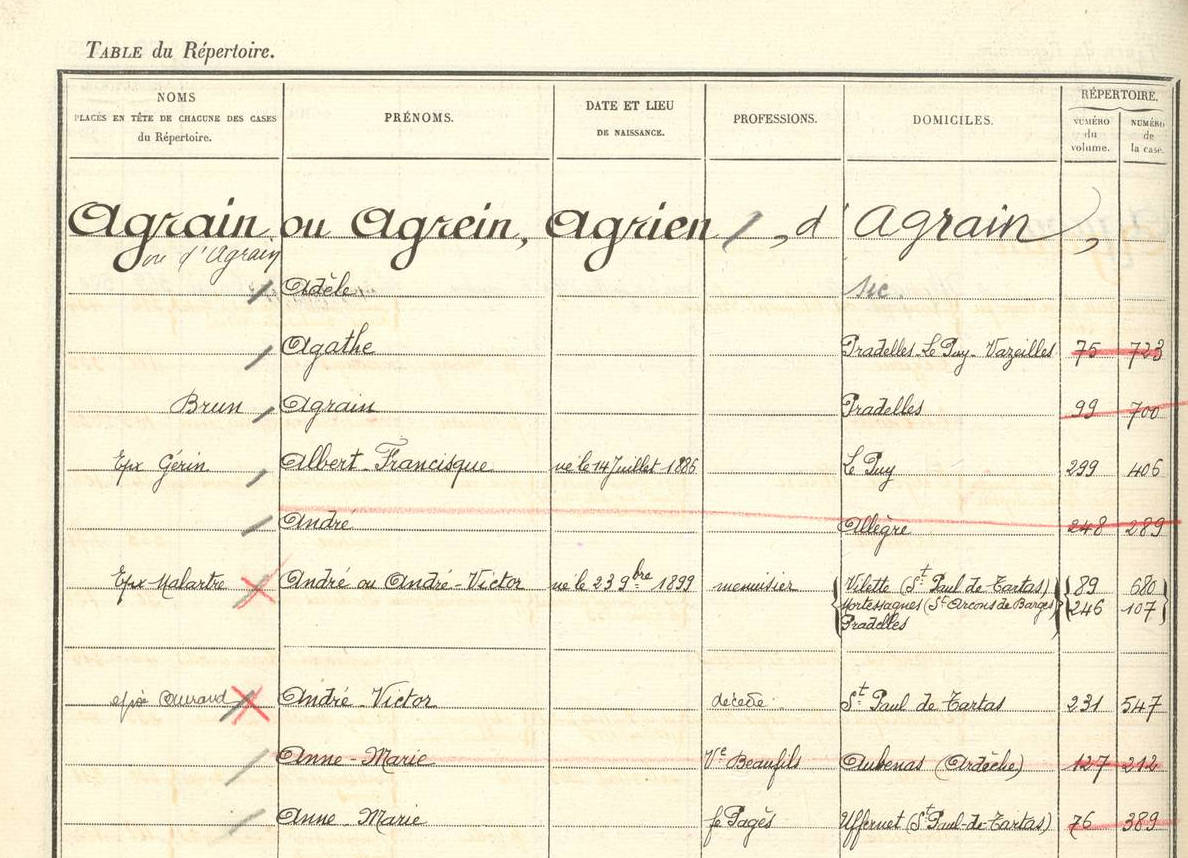 TABLE du Répertoire.
NOMS
PLACÉS EN TÊTE DE CHACUNE DES CASES
du Répertoire.
PRÉNOMS.
DATE ET LIEU
DE NAISSANCE.
PROFESSIONS.
DOMICILES.
RÉPERTOIRE.
NUMÉRO
du
volume.
NUMÉRO
de
la case.
Agrain ou Agrein, Agrien, d'Agrain,
ou d'Agrain
Adèle sic
Agathe Pradelles-Le Puy-Vazeilles 75 723
Brun Agrain Pradelles 99 700
Epx Gérin Albert-Francisque né le 14 Juillet 1886 Le Puy 299 406
André Allègre 248 289
Epx Malartre André ou André-Victor né le 23 9bre 1899 menuisier Vilette (St Paul de Tartas) 89 680
Mortessagnes (St Arcons de Barges) 246 107
Pradelles
André-Victor décédé St Paul de Tartas 231 547
Anne-Marie Ve Beaufils Aubenas (Ardèche) 127 212
Anne-Marie fe Pagès Uffernet (St Paul-de-Tartas) 76 389